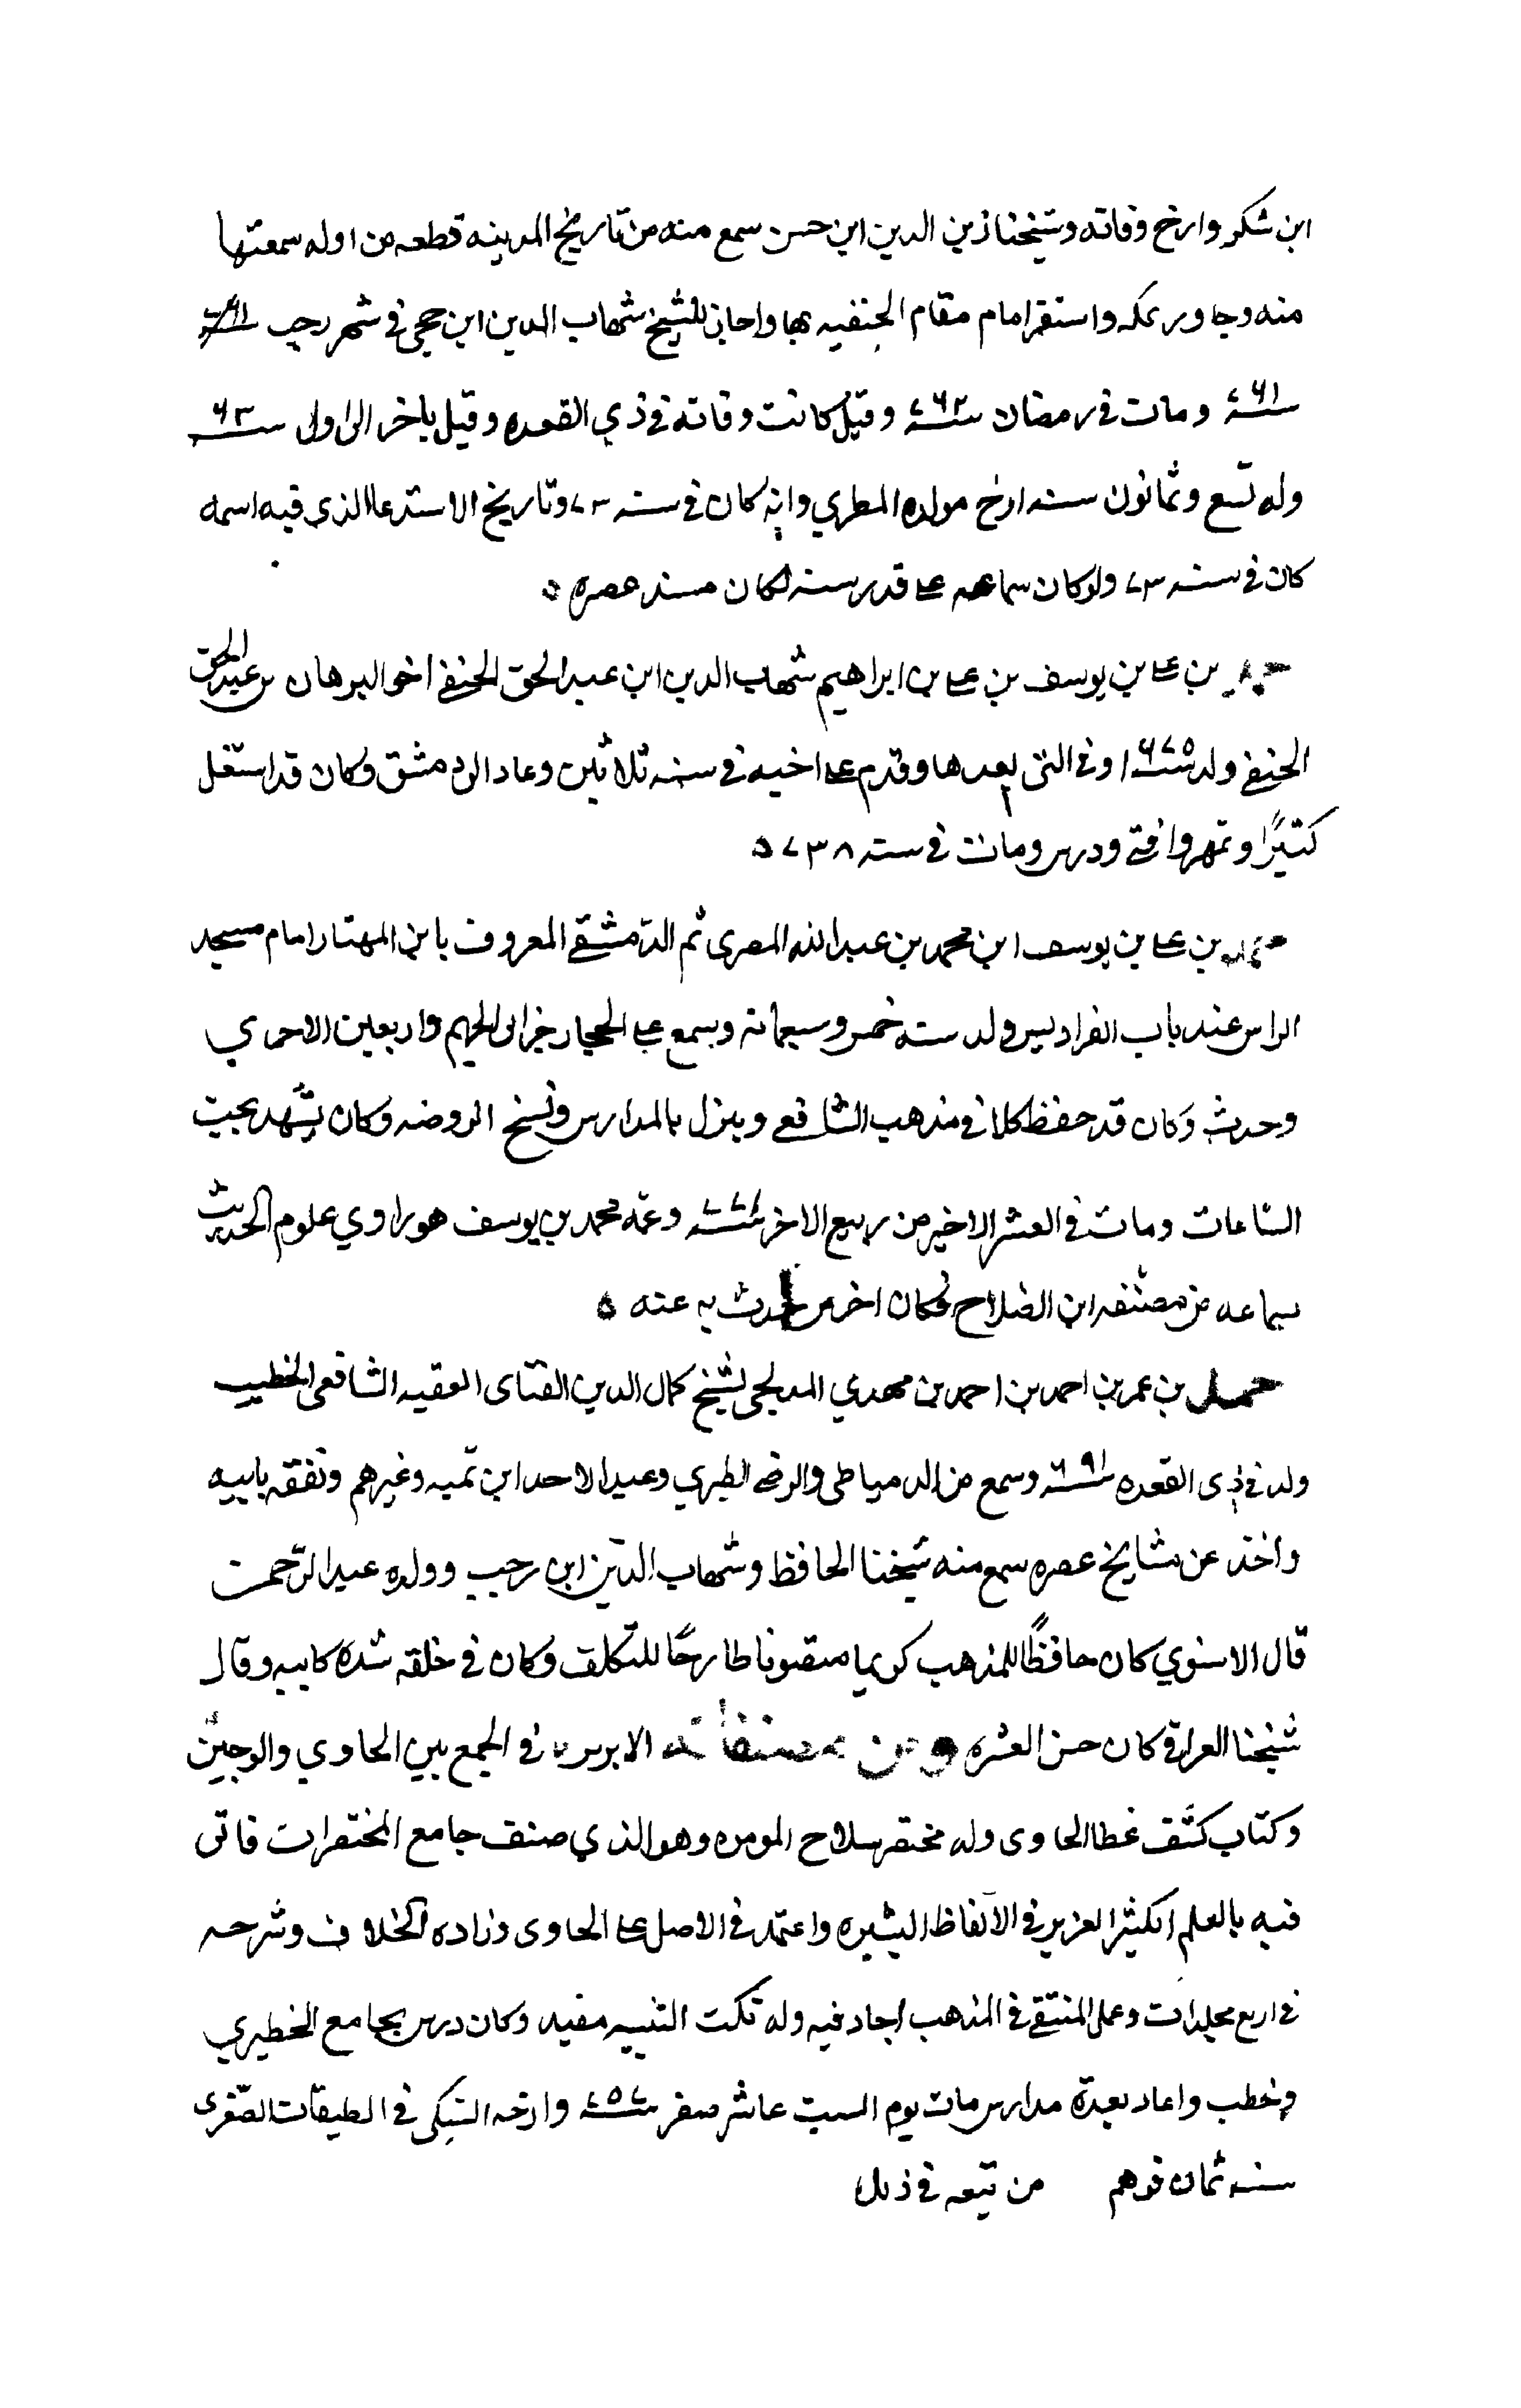 ابن شكر وارخ وفاته وشيخنا زين الدين ابن حسن سمع منه من تاريخ المدينه قطعه من اوله سمعتها
منه وجاور بمكه واستقر امام مقام الحنفيه بها واجاز للشيخ شهاب الدين ابن حجي في شهر رجب
سنة ٧٦١ ومات في رمضان سنة ٧٦٢ وقيل كانت وفاته في ذي القعده وقيل باخر الى اول سنة ٦٣
وله تسع وثمانون سنه ارخ مولده المطري وانه كان في سنه ٧٣ وتاريخ الاستدعا الذي فيه اسمه
كان في سنه ٧٣ ولو كان سماعه على قدر سنه لكان مسند عصره ه
محمد بن علي بن يوسف بن علي بن ابراهيم شهاب الدين ابن عبد الحق الحنفي اخو البرهان بن عبد الحق
الحنفي ولد سنة ٦٧٥ او في التي بعدها وقدم على اخيه في سنه ثلاثين وعاد الى دمشق وكان قد اشتغل
كثيرًا وتمهر وافتى ودرس ومات في سنه ٧٣٨ ه
محمد بن علي بن يوسف ابن محمد بن عبد الله المصرى ثم الدمشقي المعروف بابن المهتار امام مسجد
الراس عند باب الفراديس ولد سنه خمس وسبعمائه وسمع على الحجار جزء ابى الجهم واربعين الاجري
وحدث وكان قد حفظ كلا في مذهب الشافعي وينزل بالمدارس ونسخ الروضه وكان يشهد بحيث
الساعات ومات في العشر الاخير من ربيع الاخر سنة ٧٧١ وعمه محمد بن يوسف هو راوي علوم الحديث
سماعه من مصنفه ابن الصلاح وكان اخر من حدث به عنه ه
محمد بن عمر بن احمد بن احمد بن مهدي المدلجي الشيخ كمال الدين النشاى الفقيه الشافعي الخطيب
ولد في ذى القعده سنة ٦٩١ وسمع من الدمياطي والرضي الطبري وعبد الاحد ابن تيميه وغيرهم وتفقه بابيه
واخذ عن مشايخ عصره سمع منه شيخنا الحافظ وشهاب الدين ابن رجب وولده عبد الرحمن
قال الاسنوي كان حافظًا للمذهب كريما متصونا طارحًا للتكلف وكان في خلقه شده كابيه وقال
شيخنا العراقي كان حسن العشره ومن مصنفاته الابريز في الجمع بين الحاوي والوجيز
وكتاب كشف غطا الحاوى وله مختصر سلاح المومن وهو الذي صنف جامع المختصرات فاتى
فيه بالعلم الكثير العزيز في الالفاظ اليسيره واعتمد في الاصل على الحاوى وزاده الخلاف وشرحه
في اربع مجلدات وعمل المنتقى في المذهب اجاد فيه وله نكت التنبيه مفيد وكان درس بجامع الخطيري
وخطب واعاد بعدة مدارس مات يوم السبت عاشر صفر سنة ٧٥٧ وارخه السبكى في الطبقات الصغرى
سنه ثمان فوهم من تبعه في ذلك